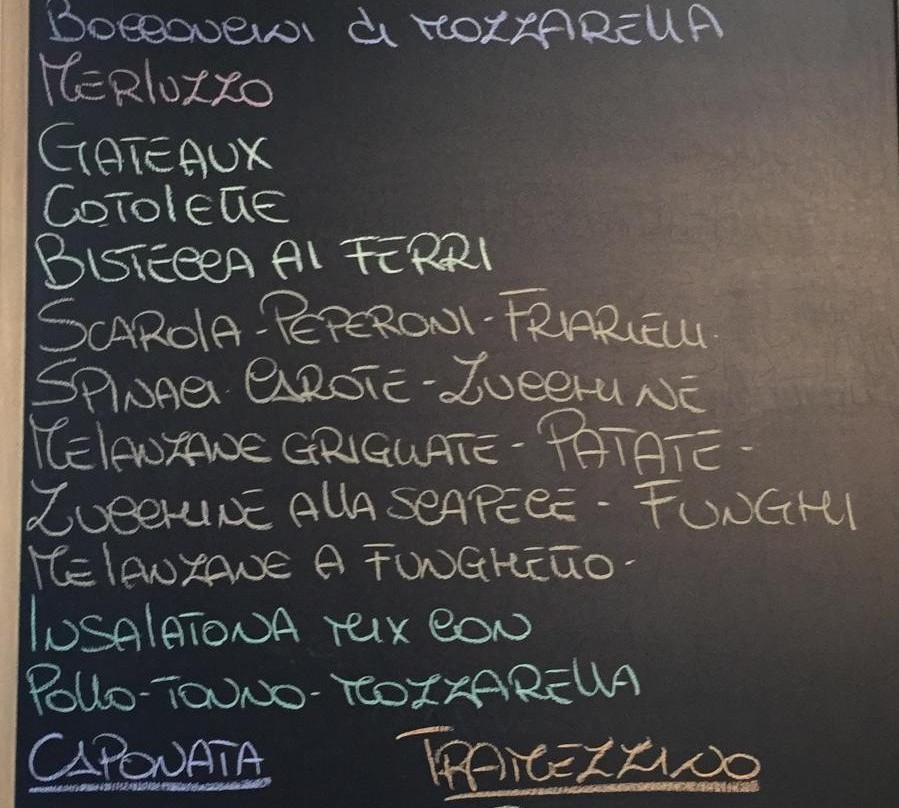 Bocconcini di MOZZARELLA
MERLUZZO
GATEAUX
COTOLETTE
BISTECCA AI FERRI
SCAROLA - PEPERONI - FRIARIELLI.
SPINACI. CAROTE - ZUCCHINE
MELANZANE GRIGLIATE - PATATE -
ZUCCHINE ALLA SCAPECE - FUNGHI
MELANZANE A FUNGHETTO -
INSALATONA MIX CON
POLLO - TONNO - MOZZARELLA
CAPONATA TRAMEZZINO